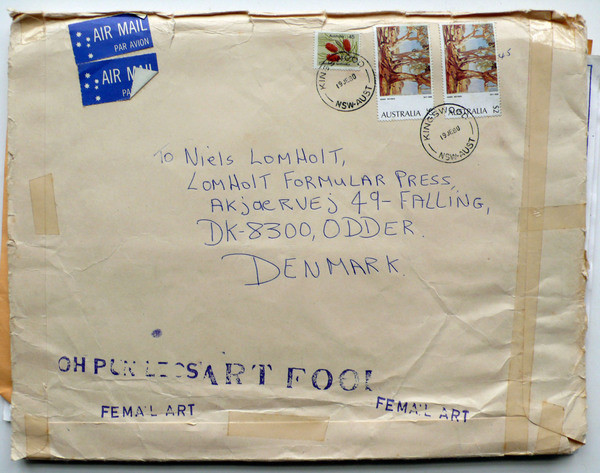 AIR MAIL
PAR AVION
AIR MAIL
PA
AUSTRALIA
AUSTRALIA
KINGSWOOD
19 JE 80
NSW-AUST
KINGSWOOD
19 JE 80
NSW-AUST
To Niels LOMHOLT,
LOMHOLT FORMULAR PRESS,
AKjaerVej 49-FALLING,
DK-8300, ODDER.
DENMARK.
OH
ART FOOL
FEMAIL ART
FEMAIL ART